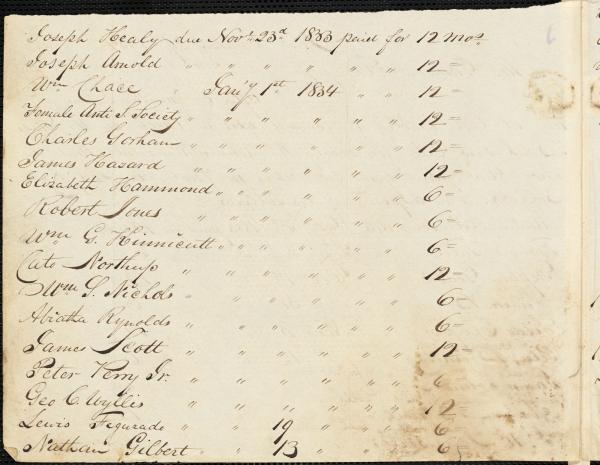 Joseph Healy due Novr. 23d 1833 paid for 12 mos.
Joseph Arnold " " " " " " 12 "
Wm Chace " Jan'y 1st 1834 " " 12 "
Female Anti S. Society " " " " " " 12 "
Charles Gorham " " " " " " 12 "
James Hazard " " " " " " 12
Elizabeth Hammond " " " " " " 6 "
Robert Jones " " " " " " 6 "
Wm G. Kinnicutt " " " " " " 6 "
Cato Northup " " " " " " 12 "
Wm S. Nichols " " " " " " 6 "
Abiatha Rynolds " " " " " " 6 "
James Scott " " " " " " 12 "
Peter Perry Jr. " " " " " " 6 "
Geo C. Wyllis " " " " " " 12 "
Lewis " 19 " " " 6
Nathan Gilbert " 13 " " " 6